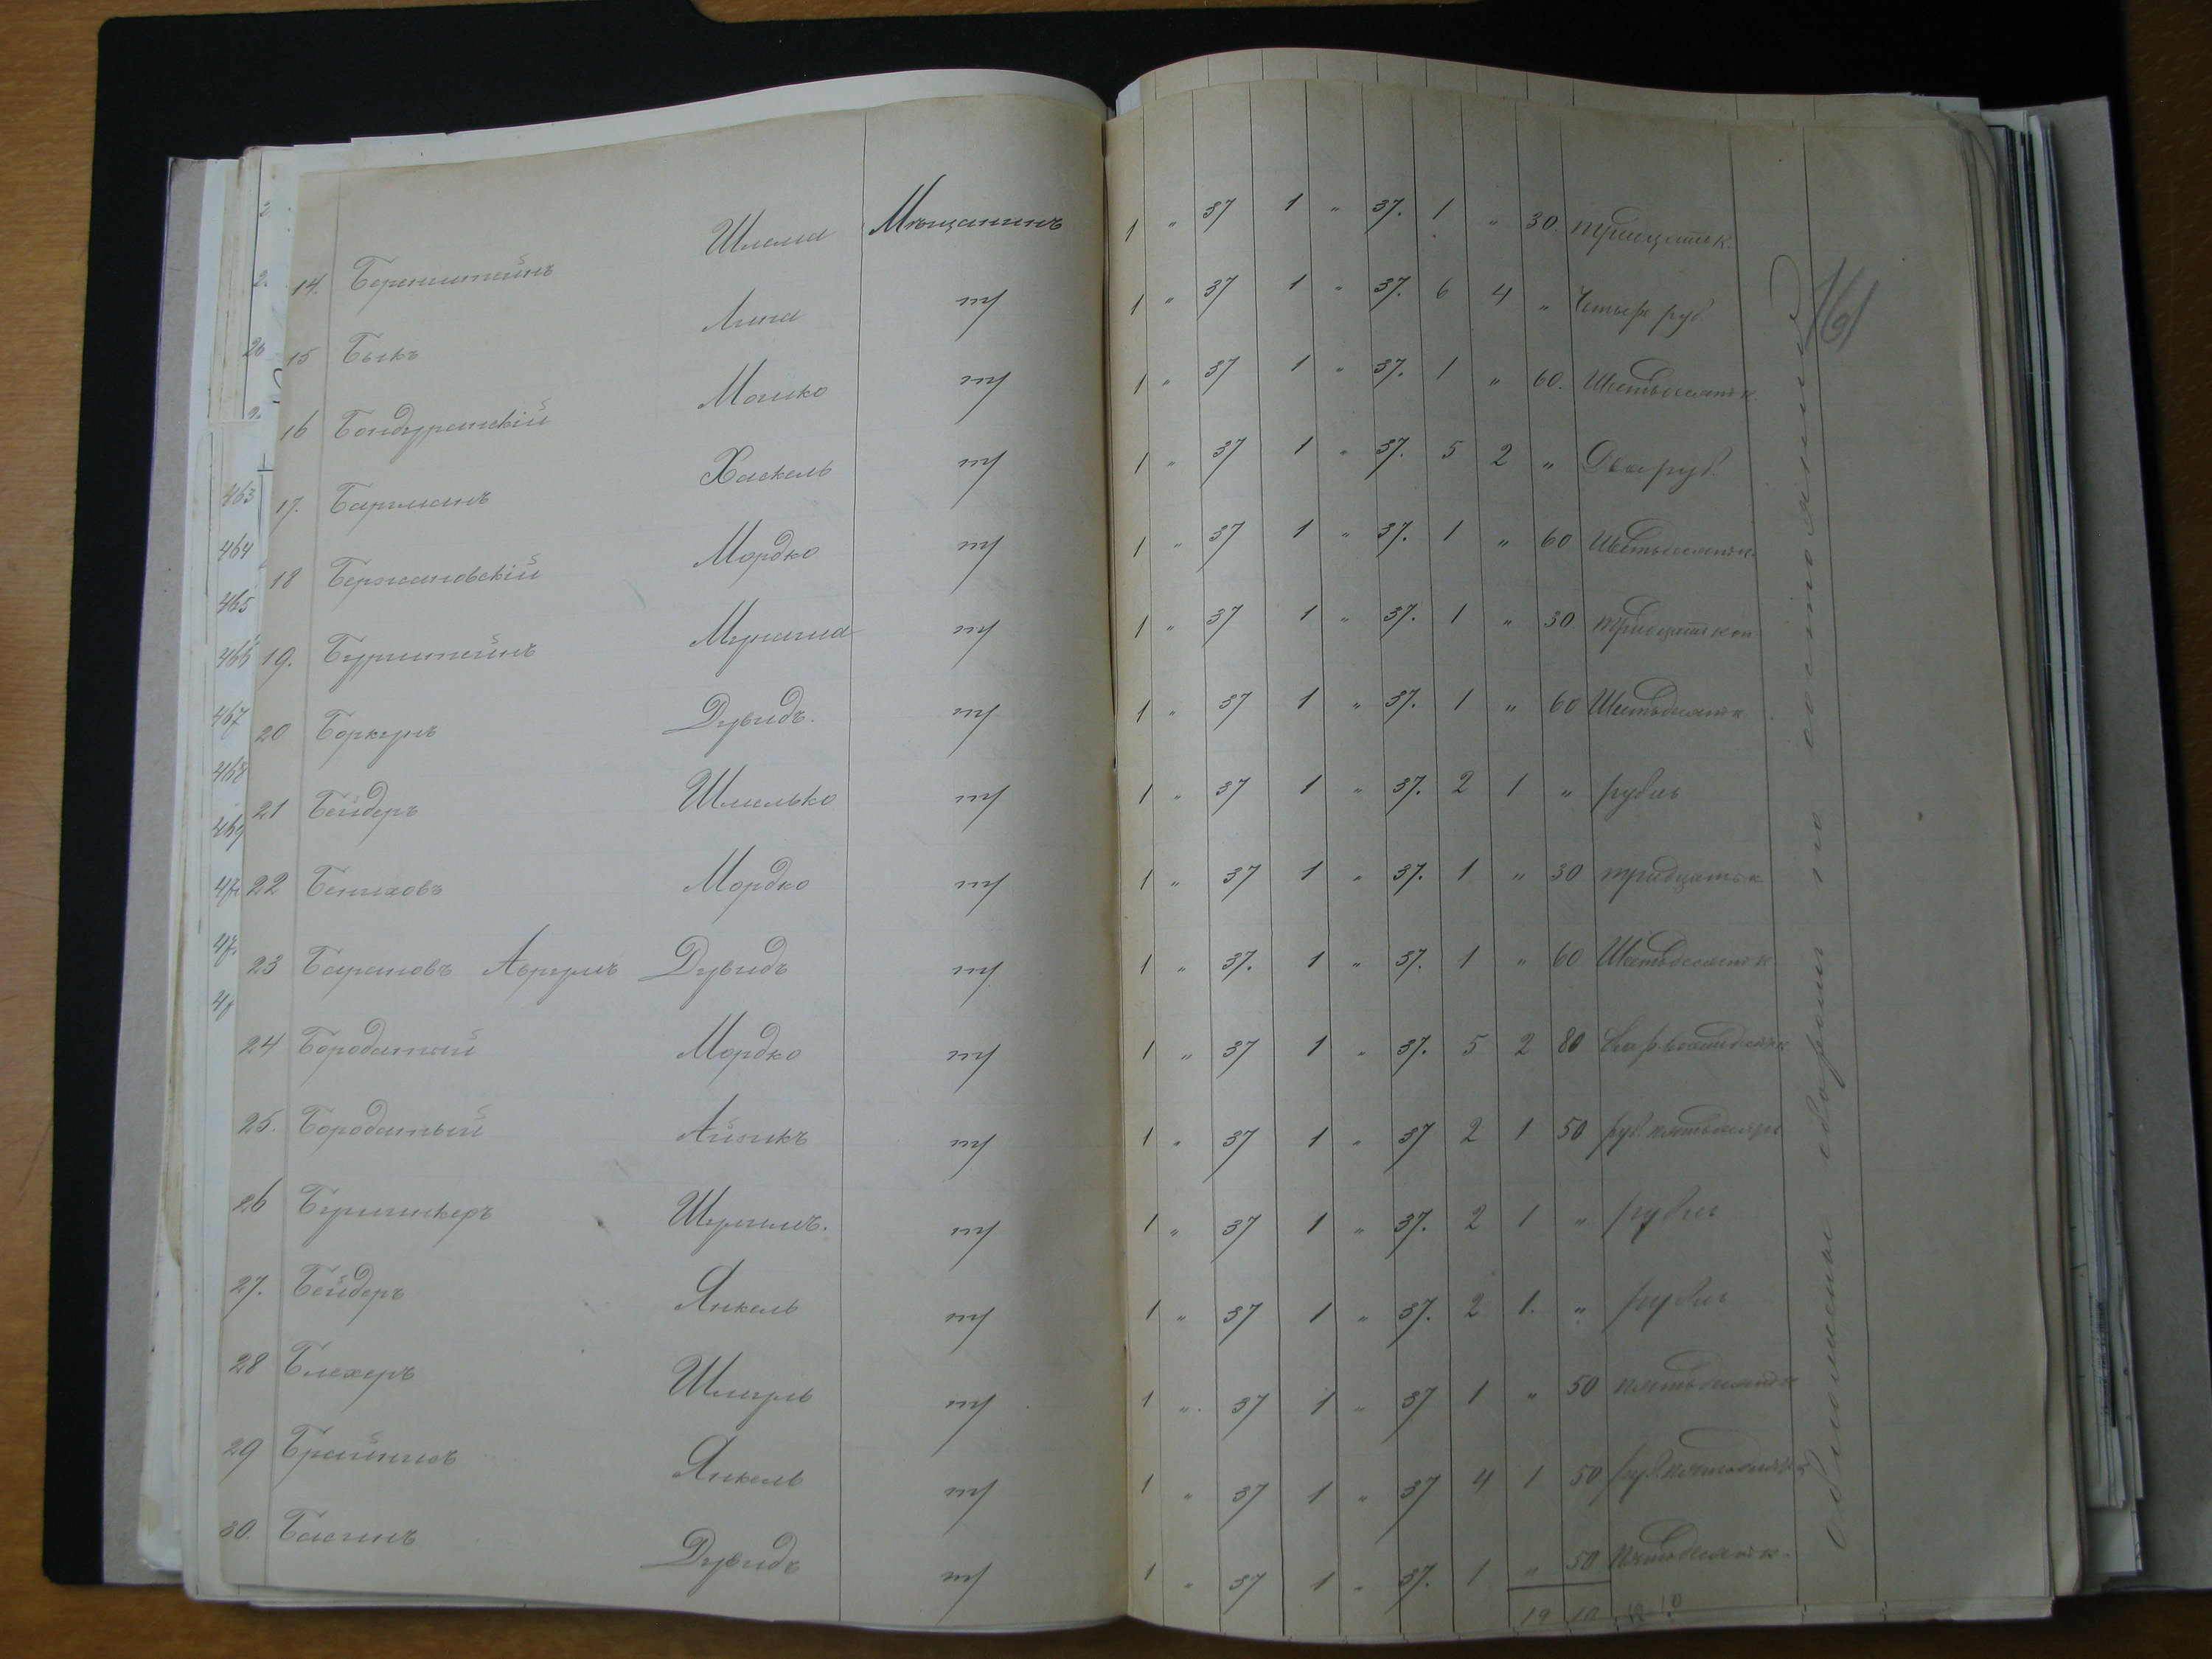 14. Беренштейнъ Шлема Мѣщанинъ 1 " 37 1 " 37. 1 " 30. тридцать к.
15 Быкъ Лина т/ 1 " 37 1 " 37. 6 4 " Четыре руб
16 Бондуранскій Мошко т/ 1 " 37 1 " 37. 1 " 60. Шестьдесятъ к.
17. Барманъ Хаскель т/ 1 " 37 1 " 37. 5 2 " Два руб.
18 Бержановскій Мордко т/ 1 " 37 1 " 37. 1 " 60 Шестьдесятъ к.
19. Бурштейнъ т/ 1 " 37 1 " 37. 1 " 30 тридцать коп
20 Боркунъ Дувидъ. т/ 1 " 37 1 " 37. 1 " 60 Шестьдесятъ к.
21 Бейдеръ Шмилько т/ 1 " 37 1 " 37. 2 1 " рубль
22 Мордко т/ 1 " 37 1 " 37. 1 " 30 тридцать к
23 Барановъ Аврумъ Дувидъ т/ 1 " 37. 1 " 37. 1 " 60 Шестьдесятъ к
24 Бородатый Мордко т/ 1 " 37 1 " 37. 5 2 80 два р. восемьдесятъ к
25. Бородатый Айзикъ т/ 1 " 37 1 " 37 2 1 50 руб. пятьдесятъ
26 т/ 1 " 37 1 " 37. 2 1 " рубль
27. Бейдеръ Янкель т/ 1 " 37 1 " 37. 2 1. " рубль
28 Блехеръ Шмуль т/ 1 ". 37 1 " 37 1 " 50 пятьдесятъ к
29 Янкель т/ 1 " 37 1 " 37 4 1 50 руб. пятьдесятъ к
30. Басинъ Дувидъ т/ 1 " 37 1 " 37. 1 " 50 Пятьдесятъ к.
19 10
обложены скоромъ по состоянію
161
463
464
465
466
467
468
469